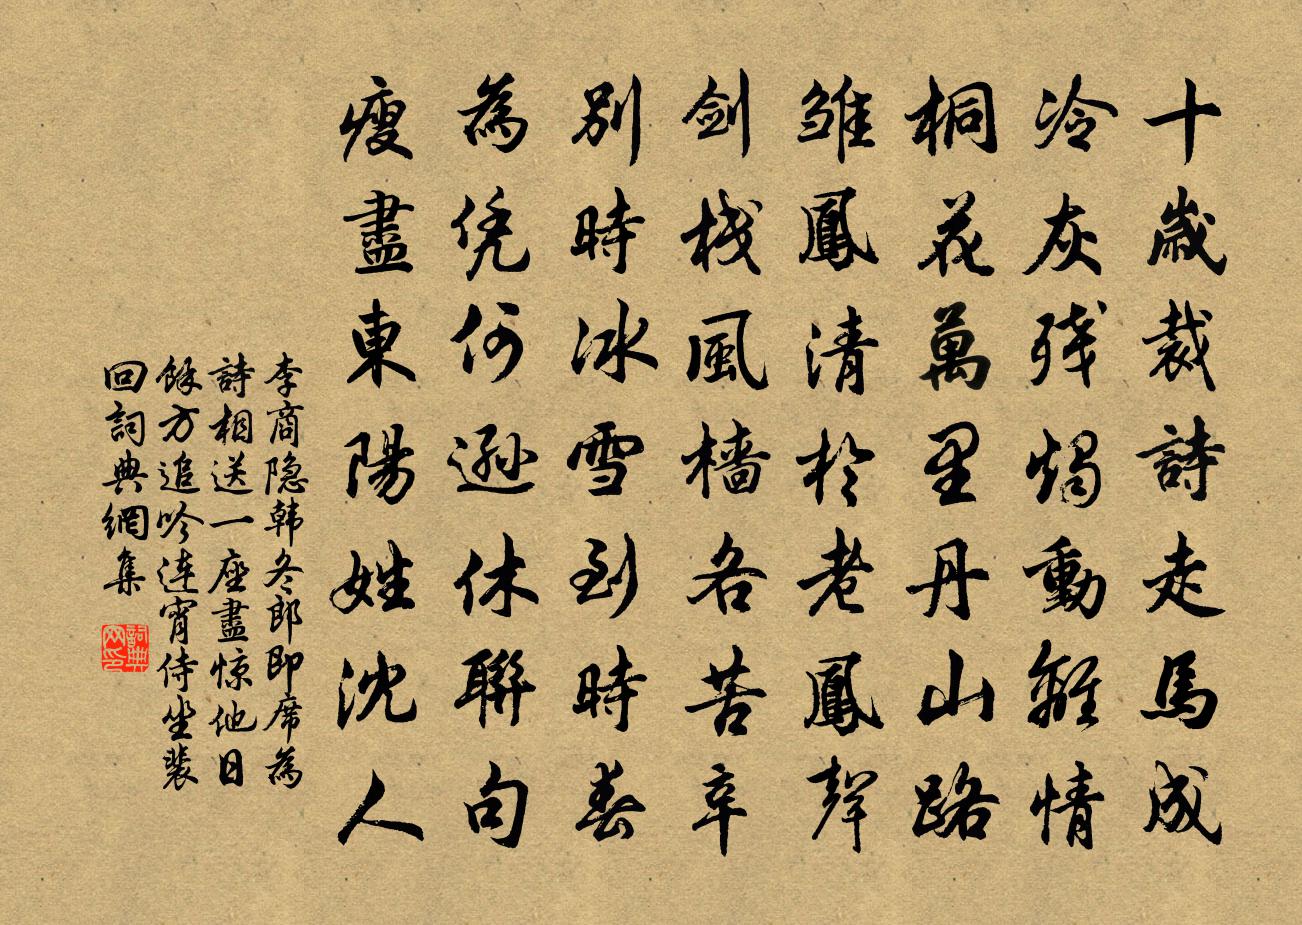 十歲裁詩走馬成
冷灰残燭動離情
桐花萬里丹山路
雛鳳清於老鳳聲
剑棧風檣各苦辛
别時冰雪到時春
為凭何遜休聯句
瘦盡東陽姓沈人
李商隐韩冬郎即席為
詩相送一座盡惊他日
餘方追吟连宵侍坐裴
回詞典網集
詞典网印